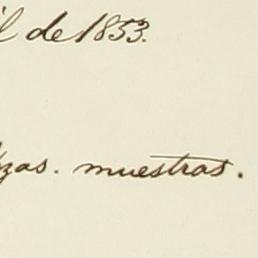 l de 1853.
zas. muestras.